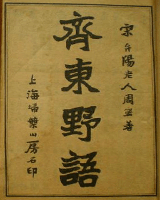 宋弁陽老人周密著
齊東野語
上海埽葉山房石印